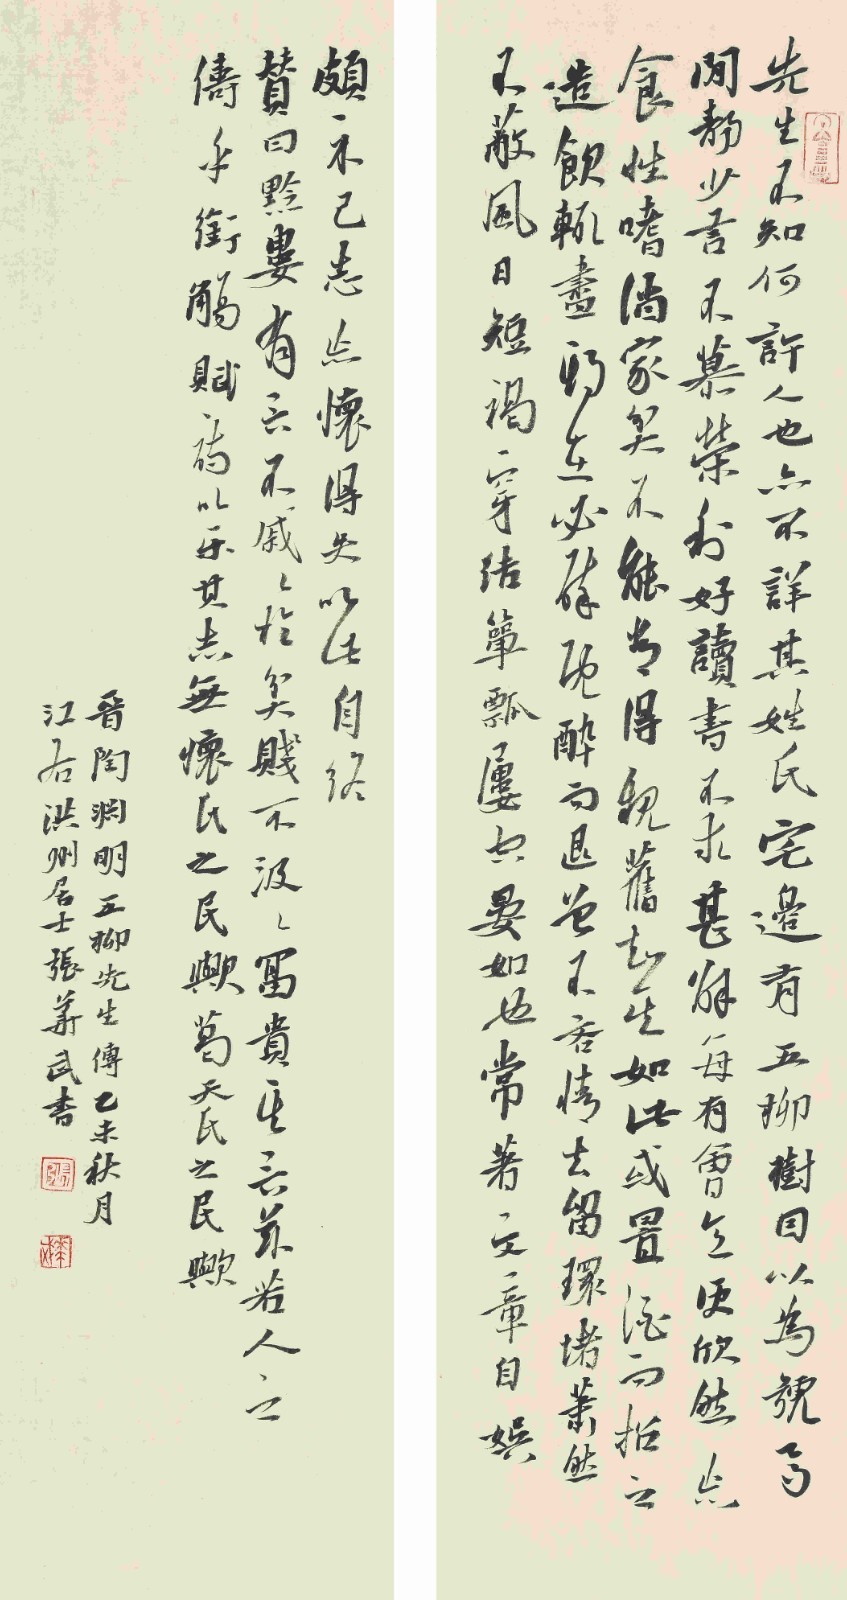 先生不知何許人也亦不詳其姓氏宅邊有五柳樹因以為號焉
閒靜少言不慕榮利好讀書不求甚解每有會意便欣然忘
食性嗜酒家貧不能常得親舊知其如此或置酒而招之
造飲輒盡期在必醉既醉而退曾不吝情去留環堵蕭然
不蔽風日短褐穿結簞瓢屢空晏如也常著文章自娛
頗示己志忘懷得失以此自終
贊曰黔婁有言不戚〻於貧賤不汲〻富貴其言茲若人之
儔乎銜觴賦詩以樂其志無懷氏之民歟葛天氏之民歟
晉陶淵明五柳先生傳乙未秋月
江右洪州居士張華武書